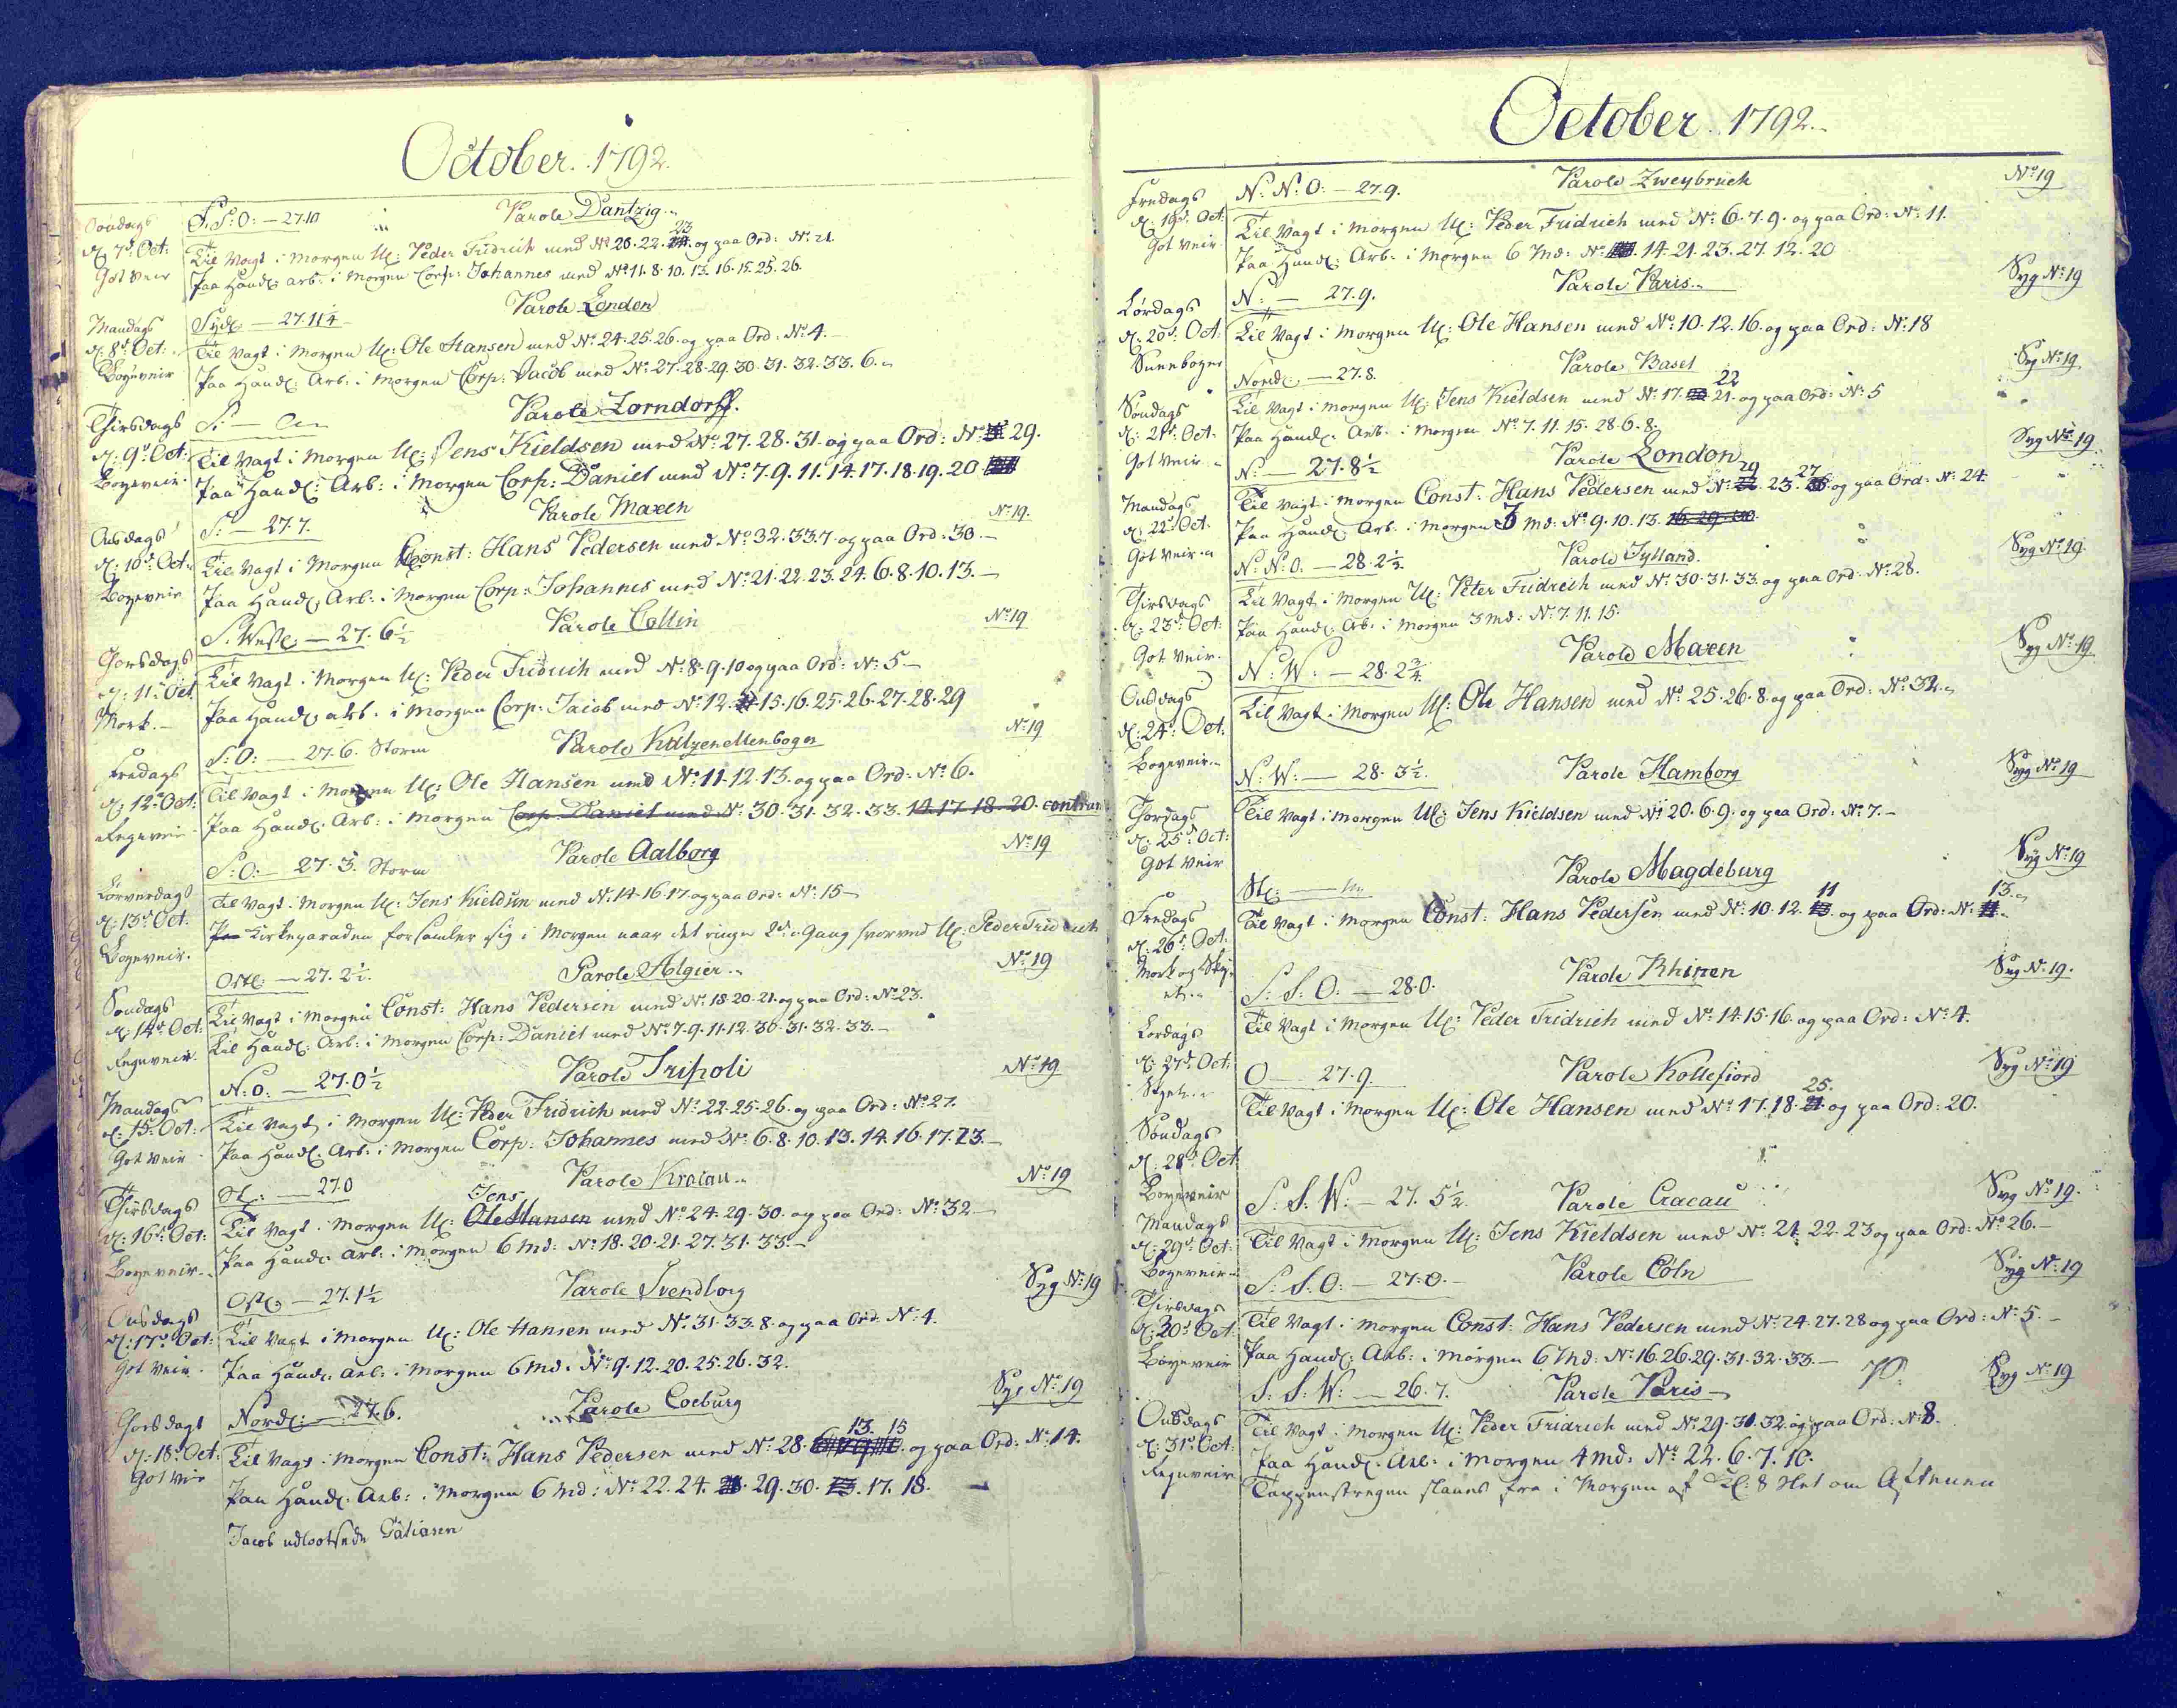 October. 1792.
Søndags S. S: O: — 27.10 Parole Dantzig
d. 7de Oct: Til Vagt i Morgen U: Peder Fridrich med No 20. 22. 23 og paa Ord: No: 21.
Got Veir Paa Handl: arb: i Morgen Corp: Johannes med No 11. 8. 10. 13. 16. 15. 25. 26.
Mandags Sydl: — 27. 11¼ Parole London
d. 8de Oct: Til Vagt i Morgen U: Ole Hansen med No 24. 25. 26. og paa Ord: No: 4.
Bøyeveir Paa Handl: Arb: i Morgen Corp: Jacob med No: 27. 28. 29. 30. 31. 32. 33. 6.
Thirsdags S: — Parole Zorndorff.
d. 9de Oct: Til Vagt i Morgen U: Jens Kieldsen med No 27. 28. 31. og paa Ord: No: 29.
Bøyeveir. Paa Handl: Arb: i Morgen Corp: Daniel med No 7. 9. 11. 14. 17. 18. 19. 20
Onsdags S: — 27. 7. Parole Maxen No: 19.
d: 10de Oct: Til Vagt i Morgen Const: Hans Pedersen med No 32. 33. 7. og paa Ord: 30.
Bøyeveir Paa Handl: Arb: i Morgen Corp: Johannes med No: 21. 22. 23. 24. 6. 8. 10. 13.
S. Westl: — 27. 6½ Parole Collin No 19
Torsdags
d: 11de Oct Til Vagt i Morgen U: Peder Fridrich med No: 8. 9. 10 og paa Ord: No: 5
Mørk. Paa Handl: arb. i Morgen Corp: Jacob med No 12. 15. 16. 25. 26. 27. 28. 29
S: O: — 27. 6. Storm Parole Katzenellenbogen No: 19
Fredags
d: 12de Oct: Til Vagt i Morgen U: Ole Hansen med No: 11. 12. 13. og paa Ord: No: 6.
Regnveir Paa Handl: Arb: i Morgen Corp: Daniel med No: 30. 31. 32. 33. 14. 17. 18. 20.
S: O: — 27. 3. Storm Parole Aalborg No: 19
Løverdags
d: 13de Oct. Til Vagt i Morgen U: Jens Kieldsen med No: 14. 16. 17. og paa Ord: No: 15
Bøyeveir. Kirkeparaden forsamler sig i Morgen naar det ringer 2de Gang hvorved U: Peder Fridrich
Ostl: — 27. 2½. Parole Algier No: 19
Søndags
d: 14de Oct: Til Vagt i Morgen Const: Hans Pedersen med No: 18. 20. 21. og paa Ord: No: 23.
Regnveir. Til Handl: Arb: i Morgen Corp: Daniel med No: 7. 9. 11. 12. 30. 31. 32. 33.
N: O: — 27. 0½ Parole Tripoli No: 19
Mandags
d: 15de Oct: Til Vagt i Morgen U: Peder Fridrich med No: 22. 25. 26. og paa Ord: No: 27.
Got Veir Paa Handl: Arb: i Morgen Corp: Johannes med No: 6. 8. 10. 13. 14. 16. 17. 23.
Thirsdags — 27.0 Parole Kracau No 19
Jens
d: 16de Oct: Til Vagt i Morgen U: Ole Hansen med No: 24. 29. 30. og paa Ord: No: 32
Bøyeveir. Paa Handl: Arb: i Morgen 6 Md: No: 18. 20. 21. 27. 31. 33.
Ostl: — 27. 1½ Parole Svendborg Syg No: 19
Onsdags
d: 17de Oct: Til Vagt i Morgen U: Ole Hansen med No: 31. 33. 8. og paa Ord: No: 4.
Got Veir. Paa Handl: Arb: i Morgen 6 Md. No: 9. 12. 20. 25. 26. 32.
Torsdags Nordl: — 27. 6. Parole Coeburg Syg No: 19
13. 15
d: 18de Oct: Til Vagt i Morgen Const: Hans Pedersen med No: 28. og paa Ord: No: 14.
Got Veir Paa Handl: Arb: i Morgen 6 Md: No: 22. 24. 29. 30. 17. 18.
Jacob
October. 1792.
Fredags N: N: O: — 27.9. Parole Zweybrück No: 19
d: 19de Oct: Til Vagt i Morgen U: Peder Fridrich med No: 6. 7. 9. og paa Ord: No: 11.
Got Veir Paa Handl: Arb: i Morgen 6 Md: No: 14. 21. 23. 27. 12. 20
Lørdags N: — 27. 9. Parole Paris Syg No: 19
d: 20de Oct. Til Vagt i Morgen U: Ole Hansen med No: 10. 12. 16. og paa Ord: No: 18
Nordl: — 27. 8. Parole Basel Syg No: 19.
22
Søndags Til Vagt i Morgen U: Jens Kieldsen med No: 17. 21. og paa Ord: No: 5
d: 21de Oct. Paa Handl: Arb: i Morgen No: 7. 11. 15. 28. 6. 8.
Got Veir N: — 27. 8½ Parole London Syg No: 19.
29 27
Mandags Til Vagt i Morgen Const: Hans Pedersen med No: 23. og paa Ord: No: 24.
d: 22de Oct. Paa Handl: Arb: i Morgen 3 Md: No: 9. 10. 13. 16. 29. 30.
Got Veir N: N: O. — 28. 2⅓ Parole Jylland. Syg No: 19.
Thirsdags Til Vagt i Morgen U: Peter Fridrich med No: 30. 31. 33. og paa Ord: No: 28.
d: 23de Oct: Paa Handl: Arb: i Morgen 3 Md: No: 7. 11. 15.
Got Veir. N: W: — 28. 2¾ Parole Maxen Syg No: 19
Onsdags
d: 24de Oct: Til Vagt i Morgen U: Ole Hansen med No: 25. 26. 8. og paa Ord: No: 32.
Bøyeveir. N: W: — 28. 3½. Parole Hamborg Syg No: 19
Torsdags Til Vagt i Morgen U: Jens Kieldsen med No: 20. 6. 9. og paa Ord: No: 7.
d: 25de Oct:
Got Veir Parole Magdeburg Syg No: 19
11 13.
Fredags Til Vagt i Morgen Const: Hans Pedersen med No: 10. 12. og paa Ord: No:
d: 26de Oct.
Mørk og Skyet S: S: O: — 28. 0. Parole Rhinen Syg No: 19.
Lørdags Til Vagt i Morgen U: Peder Fridrich med No: 14. 15. 16. og paa Ord: No: 4.
d: 27de Oct:
Skyet O — 27. 9. Parole Kollefiord Syg No: 19
25.
Til Vagt i Morgen U: Ole Hansen med No: 17. 18. og paa Ord: 20.
Søndags
d: 28de Oct:
Bøyeveir S: S: W: — 27. 5½. Parole Cracau Syg No: 19.
Mandags
d: 29de Oct: Til Vagt i Morgen U: Jens Kieldsen med No: 21. 22. 23 og paa Ord: No: 26.
Bøyeveir S: S. O: — 27. 0. Parole Cöln Syg No: 19
Thirsdags
d: 30de Oct: Til Vagt i Morgen Const: Hans Pedersen med No: 24. 27. 28 og paa Ord: No: 5.
Bøyeveir Paa Handl: Arb: i Morgen 6 Md: No: 16. 26. 29. 31. 32. 33.
S: S: W: — 26. 7. Parole Paris Syg No: 19
Onsdags Til Vagt i Morgen U: Peder Fridrich med No: 29. 30. 32. og paa Ord: No: 8.
d: 31de Oct: Paa Handl: Arb: i Morgen 4 Md: No: 22. 6. 7. 10.
Regnveir Tappenstregen slaaes fra i Morgen af Kl: 8 Slet om Aftenen